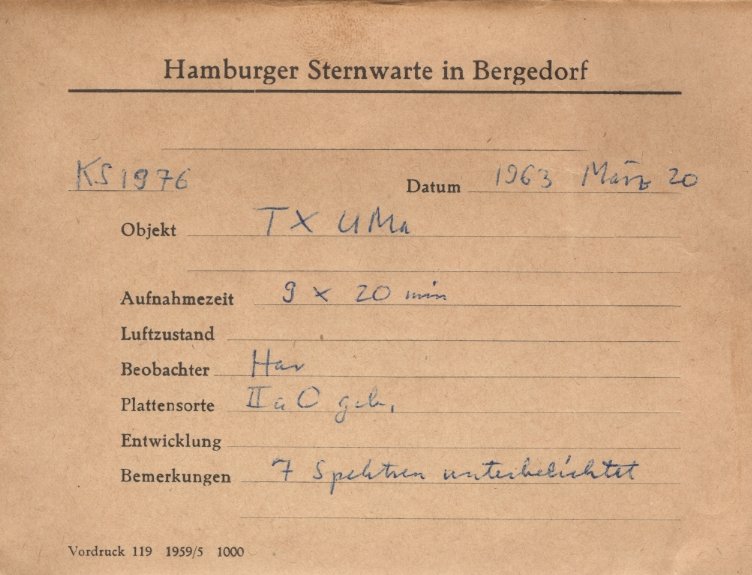 Hamburger Sternwarte in Bergedorf
KS 1976 Datum 1963 März 20
Objekt TX UMa
Aufnahmezeit 9 x 20 min
Luftzustand
Beobachter Har
Plattensorte II a O geb.
Entwicklung
Bemerkungen 7 Spektren unterbelichtet
Vordruck 119 1959/5 1000